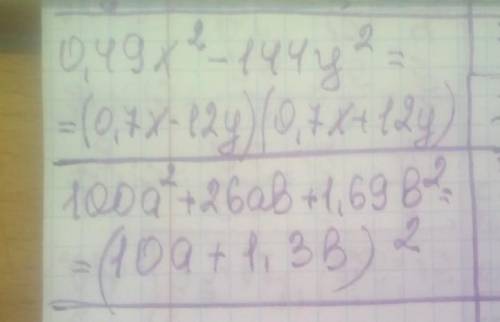 0,49x² - 144y² =
= (0,7x - 12y)(0,7x + 12y)
100a² + 26ab + 1,69b² =
= (10a + 1,3b)²